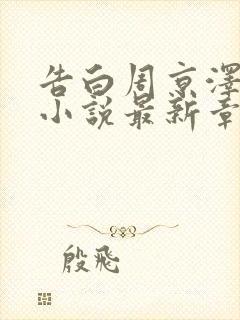 告白周京澤
小說最新章
殷飛